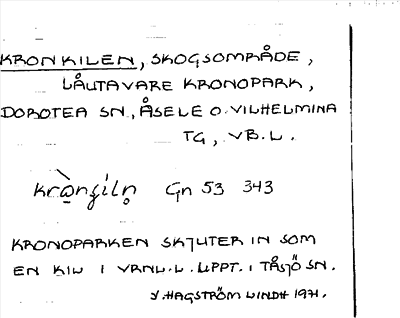 KRONKILEN, SKOGSOMRÅDE,
LÅUTAVARE KRONOPARK,
DOROTEA SN., ÅSELE O. VILHELMINA
TG, VB. L.
Gn 53 343
KRONOPARKEN SKJUTER IN SOM
EN KIL I VRNL. L. UPPT. I TÅSJÖ SN.
HAGSTRÖM LINDH 1971.